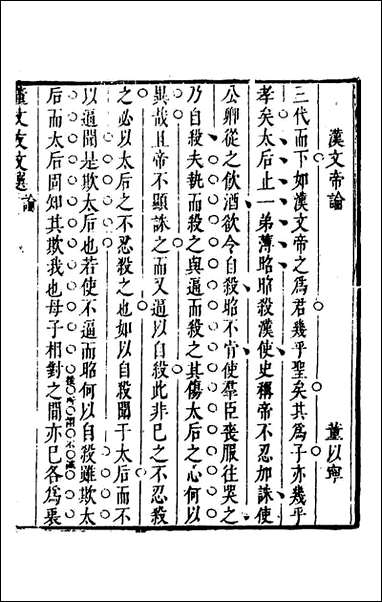 漢文帝論
董以寧
三代而下如漢文帝之爲君幾乎聖矣其爲子亦幾乎
孝矣太后止一弟薄昭昭殺漢使史稱帝不忍加誅使
公卿從之飲酒欲令自殺昭不肯使羣臣喪服往哭之
乃自殺夫執而殺之與逼而殺之其傷太后之心何以
異哉且帝不顯誅之而又逼以自殺此非巳之不忍殺
之必以太后之不忍殺之也如以自殺聞于太后而不
以逼聞是欺太后也若使不逼而昭何以自殺雖欺太
后而太后固知其欺我也母子相對之間亦巳各爲
董文友文選 論